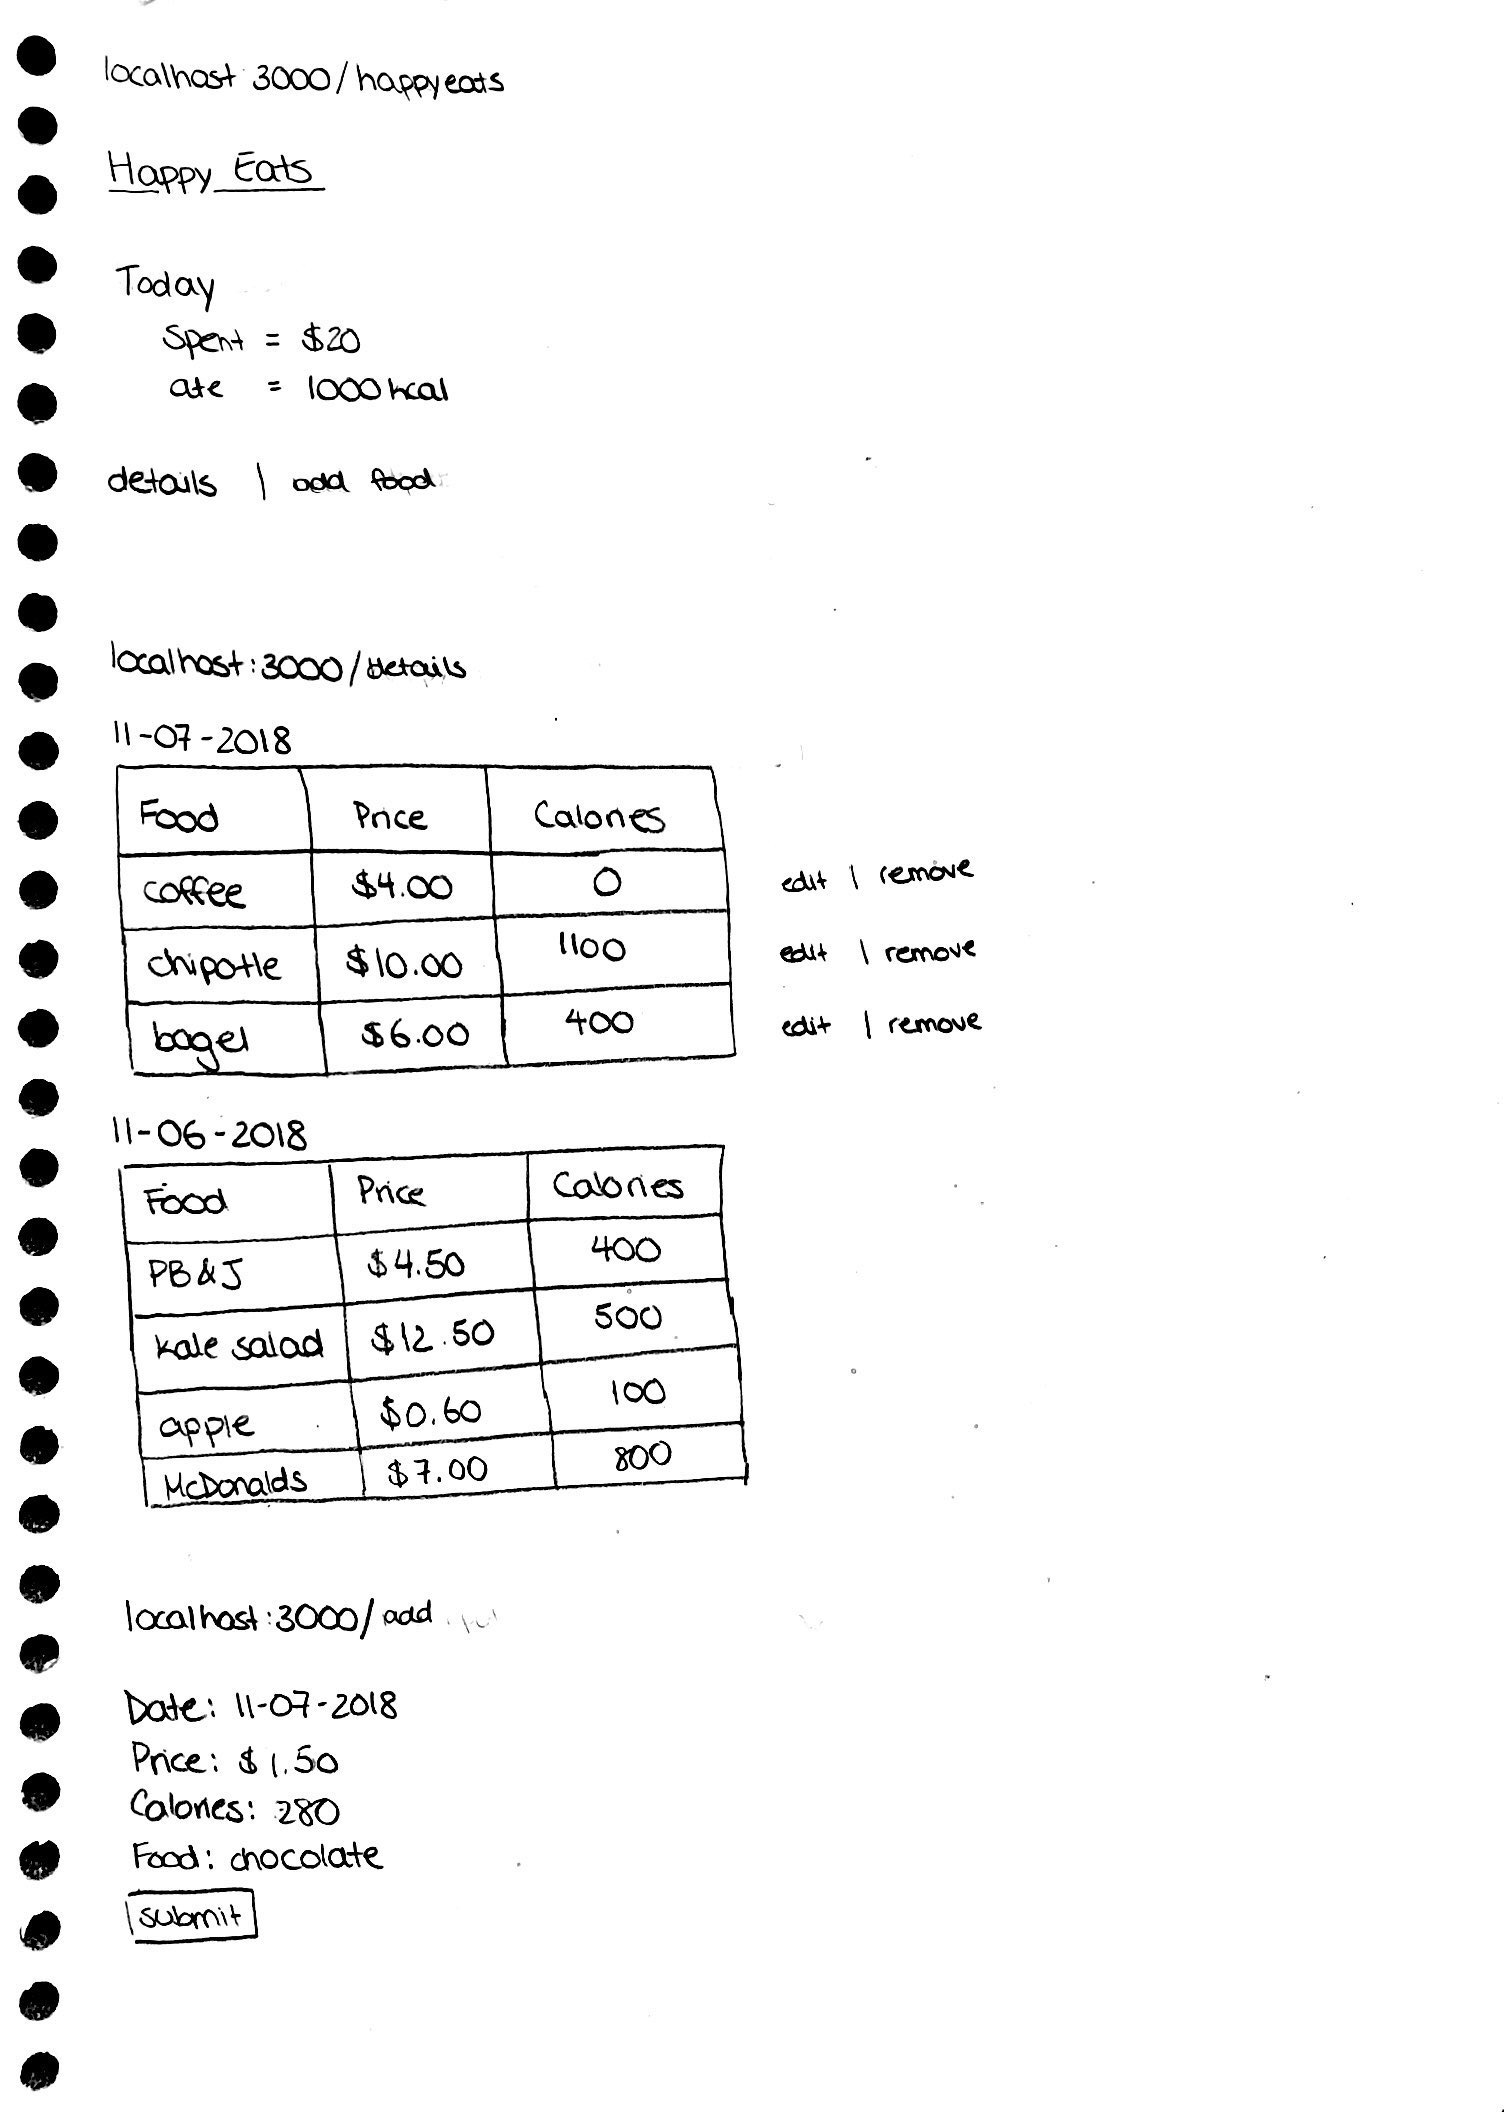 localhost 3000/happyeats
Happy Eats
Today
Spent = $20
ate = 1000 kcal
details | add food
localhost:3000/details
11-07-2018
Food Price Calories
coffee $4.00 0 edit | remove
chipotle $10.00 1100 edit | remove
bagel $6.00 400 edit | remove
11-06-2018
Food Price Calories
PB&J $4.50 400
kale salad $12.50 500
apple $0.60 100
McDonalds $7.00 800
localhost:3000/add
Date: 11-07-2018
Price: $1.50
Calories: 280
Food: chocolate
submit